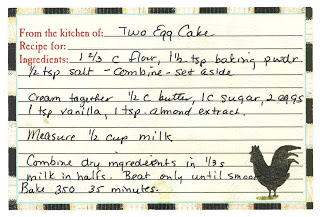 From the kitchen of: Two Egg Cake
Recipe for:
Ingredients: 1 2/3 c flour, 1 1/2 tsp baking pwdr
1/2 tsp salt - combine - set aside
Cream together 1/2 c butter, 1c sugar, 2 eggs
1 tsp vanilla, 1 tsp. almond extract.
Measure 1/2 cup milk
Combine dry ingredients in 1/3s
milk in halfs. Beat only until smoo
Bake 350 35 minutes.